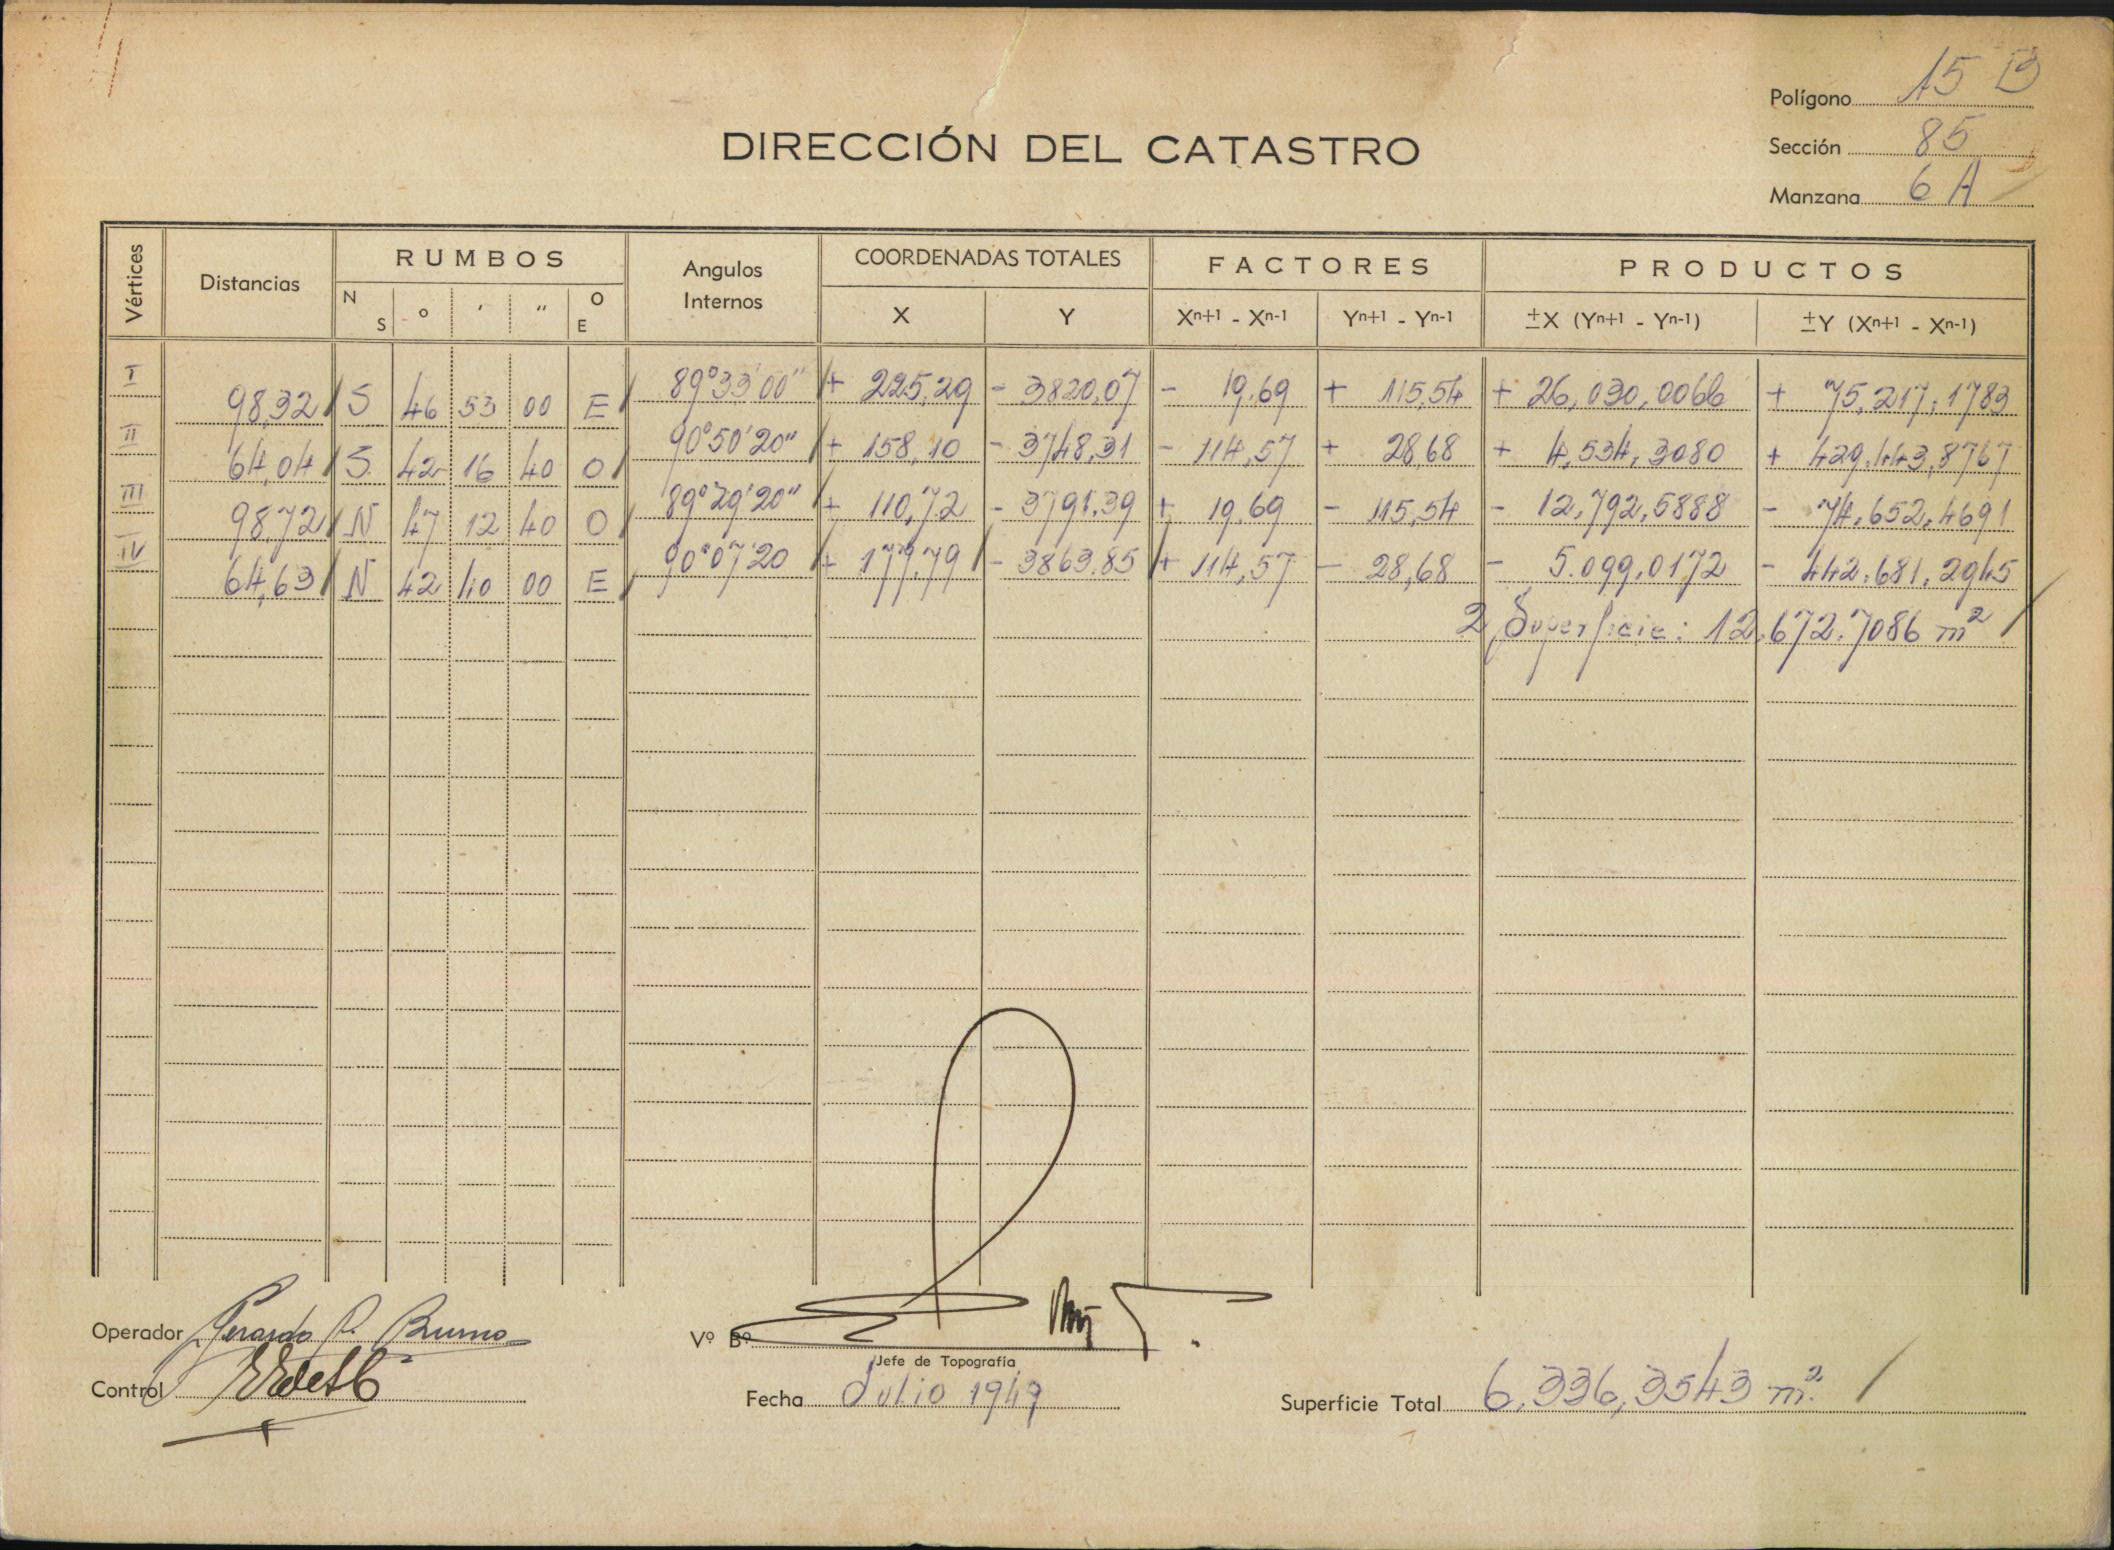 Polígono 15 B
DIRECCIÓN DEL CATASTRO
Sección 85
Manzana 6 A
Vértices Distancias RUMBOS Angulos Internos COORDENADAS TOTALES FACTORES PRODUCTOS
N S ° ′ ″ O E X Y Xⁿ⁺¹ - Xⁿ⁻¹ Yⁿ⁺¹ - Yⁿ⁻¹ ±X (Yⁿ⁺¹ - Yⁿ⁻¹) ±Y (Xⁿ⁺¹ - Xⁿ⁻¹)
I 98,32 S 46 53 00 E 89°33'00" + 225,29 - 3820,07 - 19,69 + 115,54 + 26,030,0066 + 75,217,1783
II 64,04 S 42 16 40 O 90°50'20" + 158,10 - 3748,31 - 114,57 + 28,68 + 4,534,3080 + 429.443,8767
III 98,72 N 47 12 40 O 89°29'20" + 110,72 - 3791,39 + 19,69 - 115,54 - 12,792,5888 - 74,652,4691
IV 64,63 N 42 40 00 E 90°07'20 + 177,79 - 3863.85 + 114,57 - 28,68 - 5.099,0172 - 442.681,2945
2 Superficie: 12.672.7086 m²
Operador Gerardo R. Bruno
Vº Bº
Jefe de Topografía
Control
Fecha Julio 1949
Superficie Total 6.336,3543 m².